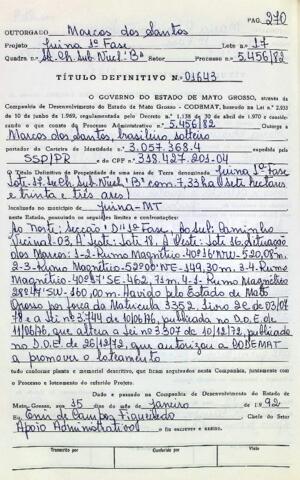 PAG. 270
OUTORGADO Marcos dos Santos
Projeto Juina 1ª Fase Lote n.º 17
Quadra n.º St. Ch. Sub. Nucl. "B" Setor Processo n.º 5.456/82
TÍTULO DEFINITIVO N.º 01643
O GOVERNO DO ESTADO DE MATO GROSSO, através da
Companhia de Desenvolvimento do Estado de Mato Grosso - CODEMAT, baseado na Lei n.º 2.933
de 10 de junho de 1.969, regulamentada pelo Decreto n.º 1.138 de 30 de abril de 1.970 e considerando
o que consta do Processo Administrativo n.º 5.456/82 Outorga a
Marcos dos Santos, brasileiro, solteiro
portador da Carteira de Identidade n.º 3.057.368-4 expedida p.
SSP/PR e do CPF n.º 318.427.201-04
O Título Definitivo de Propriedade de uma área de Terra denominada Juina 1ª Fase
Lote: 17. St. Ch. Sub. Nucl. "B" com 7,33 ha (sete hectares
e trinta e três ares)
localizada no município de Juina-MT
neste Estado, possuindo os seguintes limites e confrontações:
Ao Norte: Secção "D" 1ª Fase, Ao Sul: Caminho
Vicinal 03, A Leste: Lote 18, A Oeste: Lote 16, Situação
dos Marcos: 1-2 Rumo Magnético 40º16'NW-520,08m.
2-3-Rumo Magnético-52º00'NE-149,30m. 3-4 Rumo
Magnético-40º47'SE-462,71m. 4-1-Rumo Magnético
SW-160,00m. Havido pelo Estado de Mato
Grosso por força da Matrícula 3352, Livro 2E de 03/07/
78 e a Lei nº 3.744 de 10/06/76, publicado no D.O.E. de
11/06/76, que altera a Lei nº 3307 de 10/12/72, publicado
no D.O.E. de 26/12/72, que autorizou a CODEMAT
a promover o loteamento
tudo conforme planta e memorial descritivo, que ficam arquivados nesta Companhia, juntamente com
o Processo e loteamento do referido Projeto.
Dado e passado na Companhia de Desenvolvimento do Estado de
Mato Grosso, aos 15 dias de Janeiro de 19 92
Eu, Enir de Campos Figueiredo Chefe do Setor
Apoio Administrativo o fiz escrever e assino.
Transcrito por Conferido por Visto